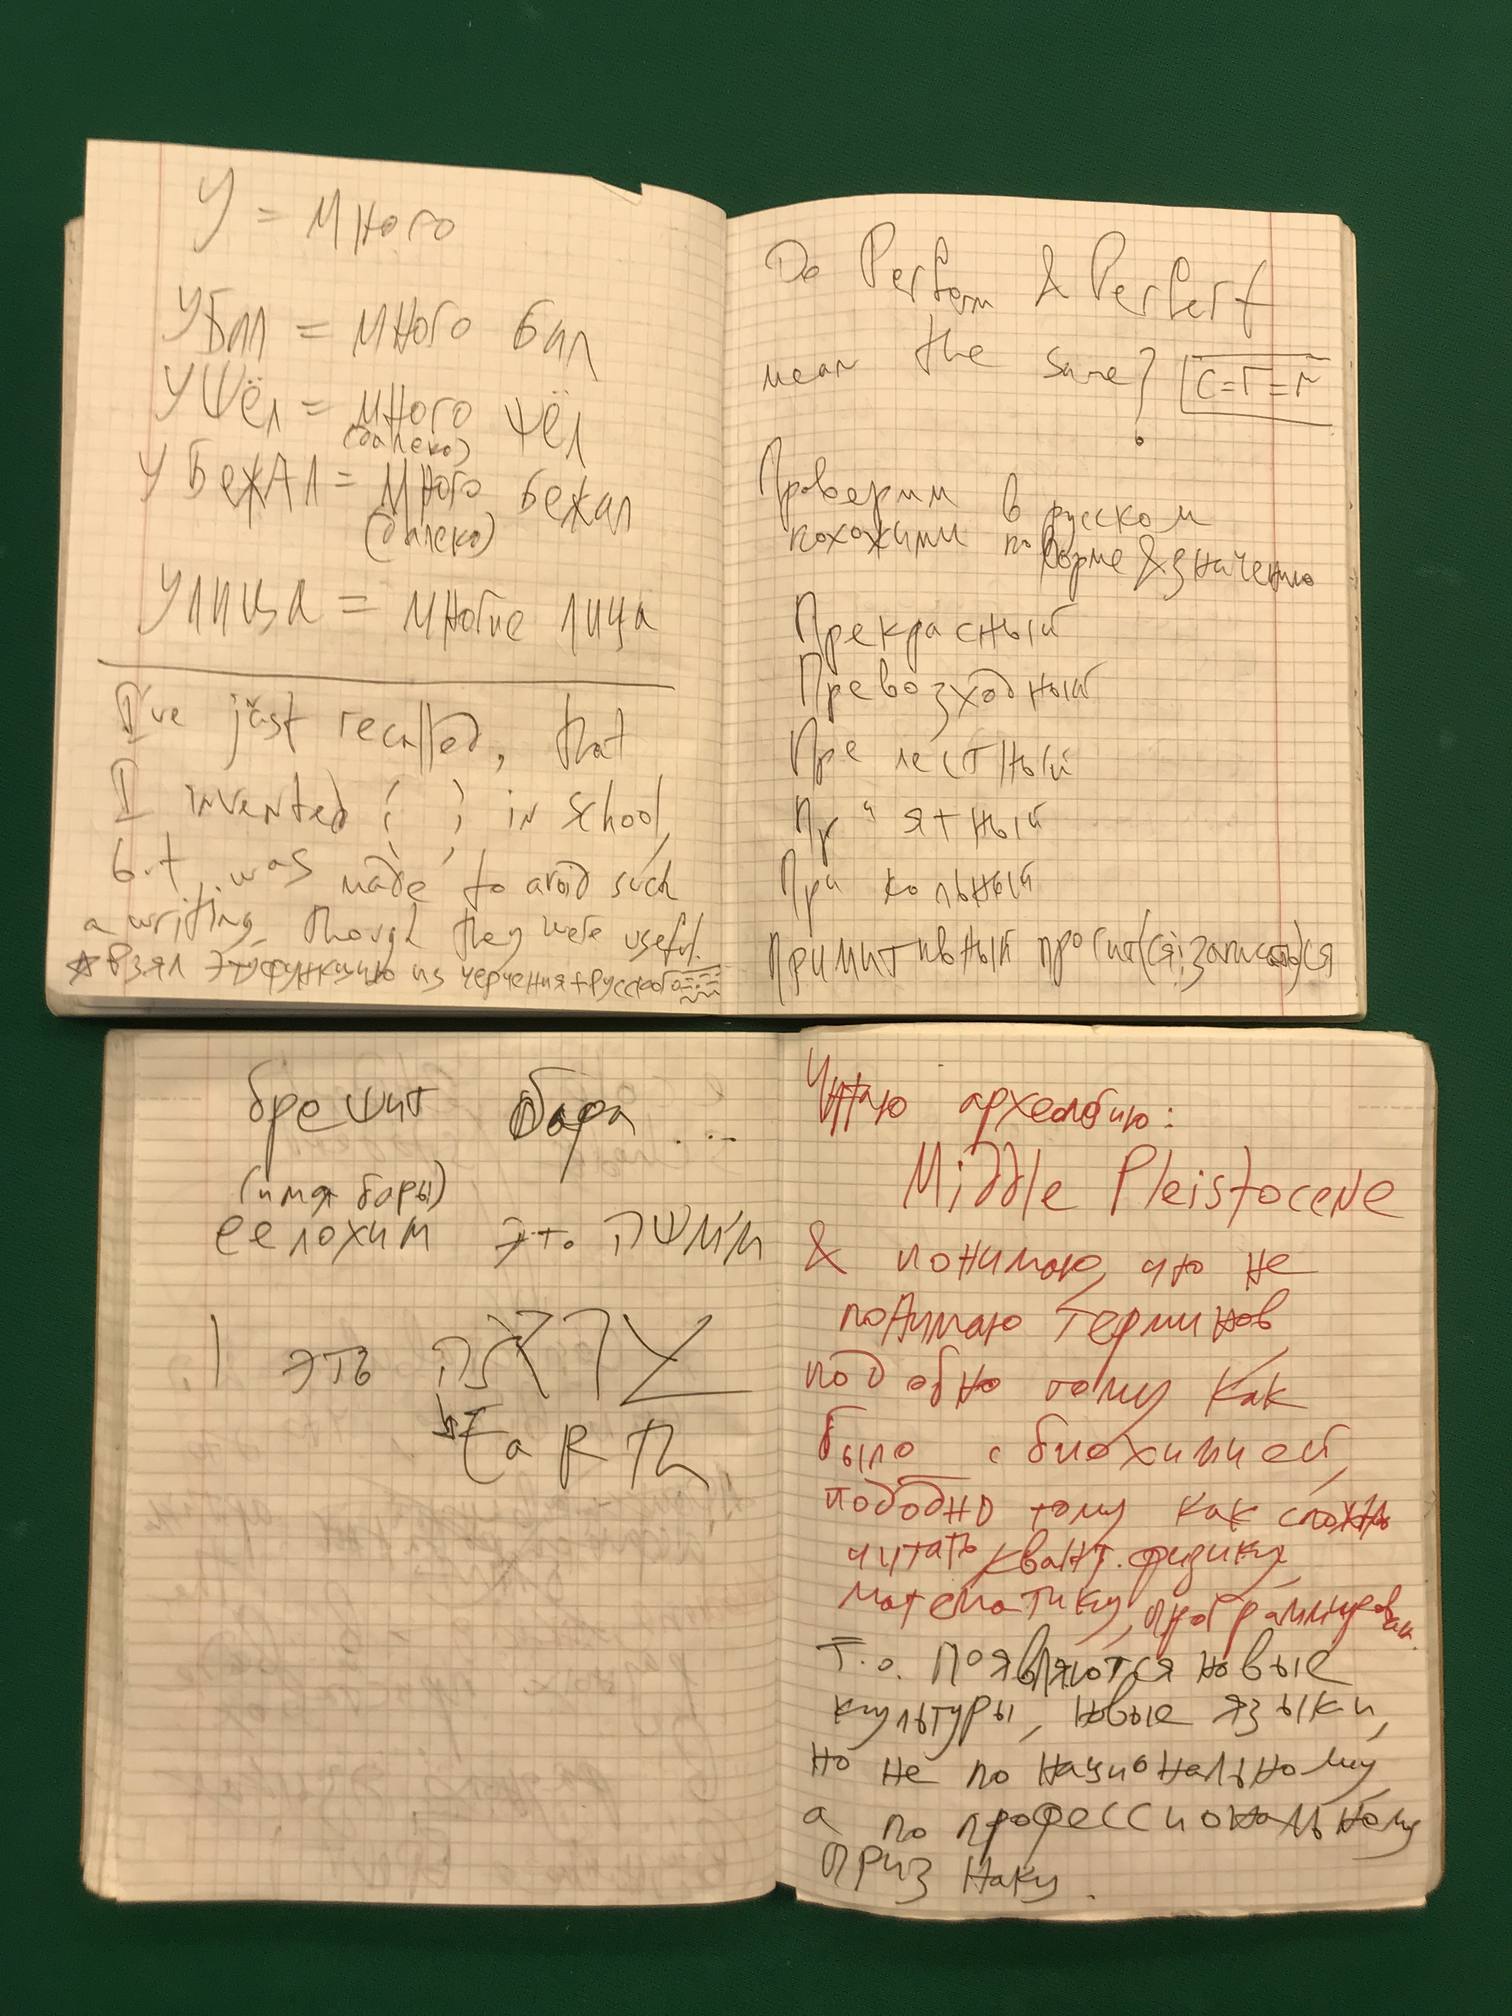 У = много
Убил = много бил
Ушёл = много шёл
(далеко)
Убежал = много бежал
(далеко)
Улица = многие лица
I've just recalled, that
I invented ( ) in school,
but was made to avoid such
a writing, though they were useful.
взял эту функцию из черчения + русского
Do Perform & Perfect
mean the same? C=Г=r
Проверим в русском
похожими по форме & значению
Прекрасный
Превозходный
Прелестный
Приятный
Прикольный
Примитивный прочит(ся;записать)ся
брешит бара ...
(имя бары)
еелохим это השמים
I это
Earth
Читаю археологию:
Middle Pleistocene
& понимаю, что не
понимаю терминов
подобно тому как
было с биохимией,
подобно тому как сложно
читать квант. физику,
математику, программирован.
Т.о. появляются новые
культуры, новые языки,
но не по национальному,
а по профессиональному
признаку.